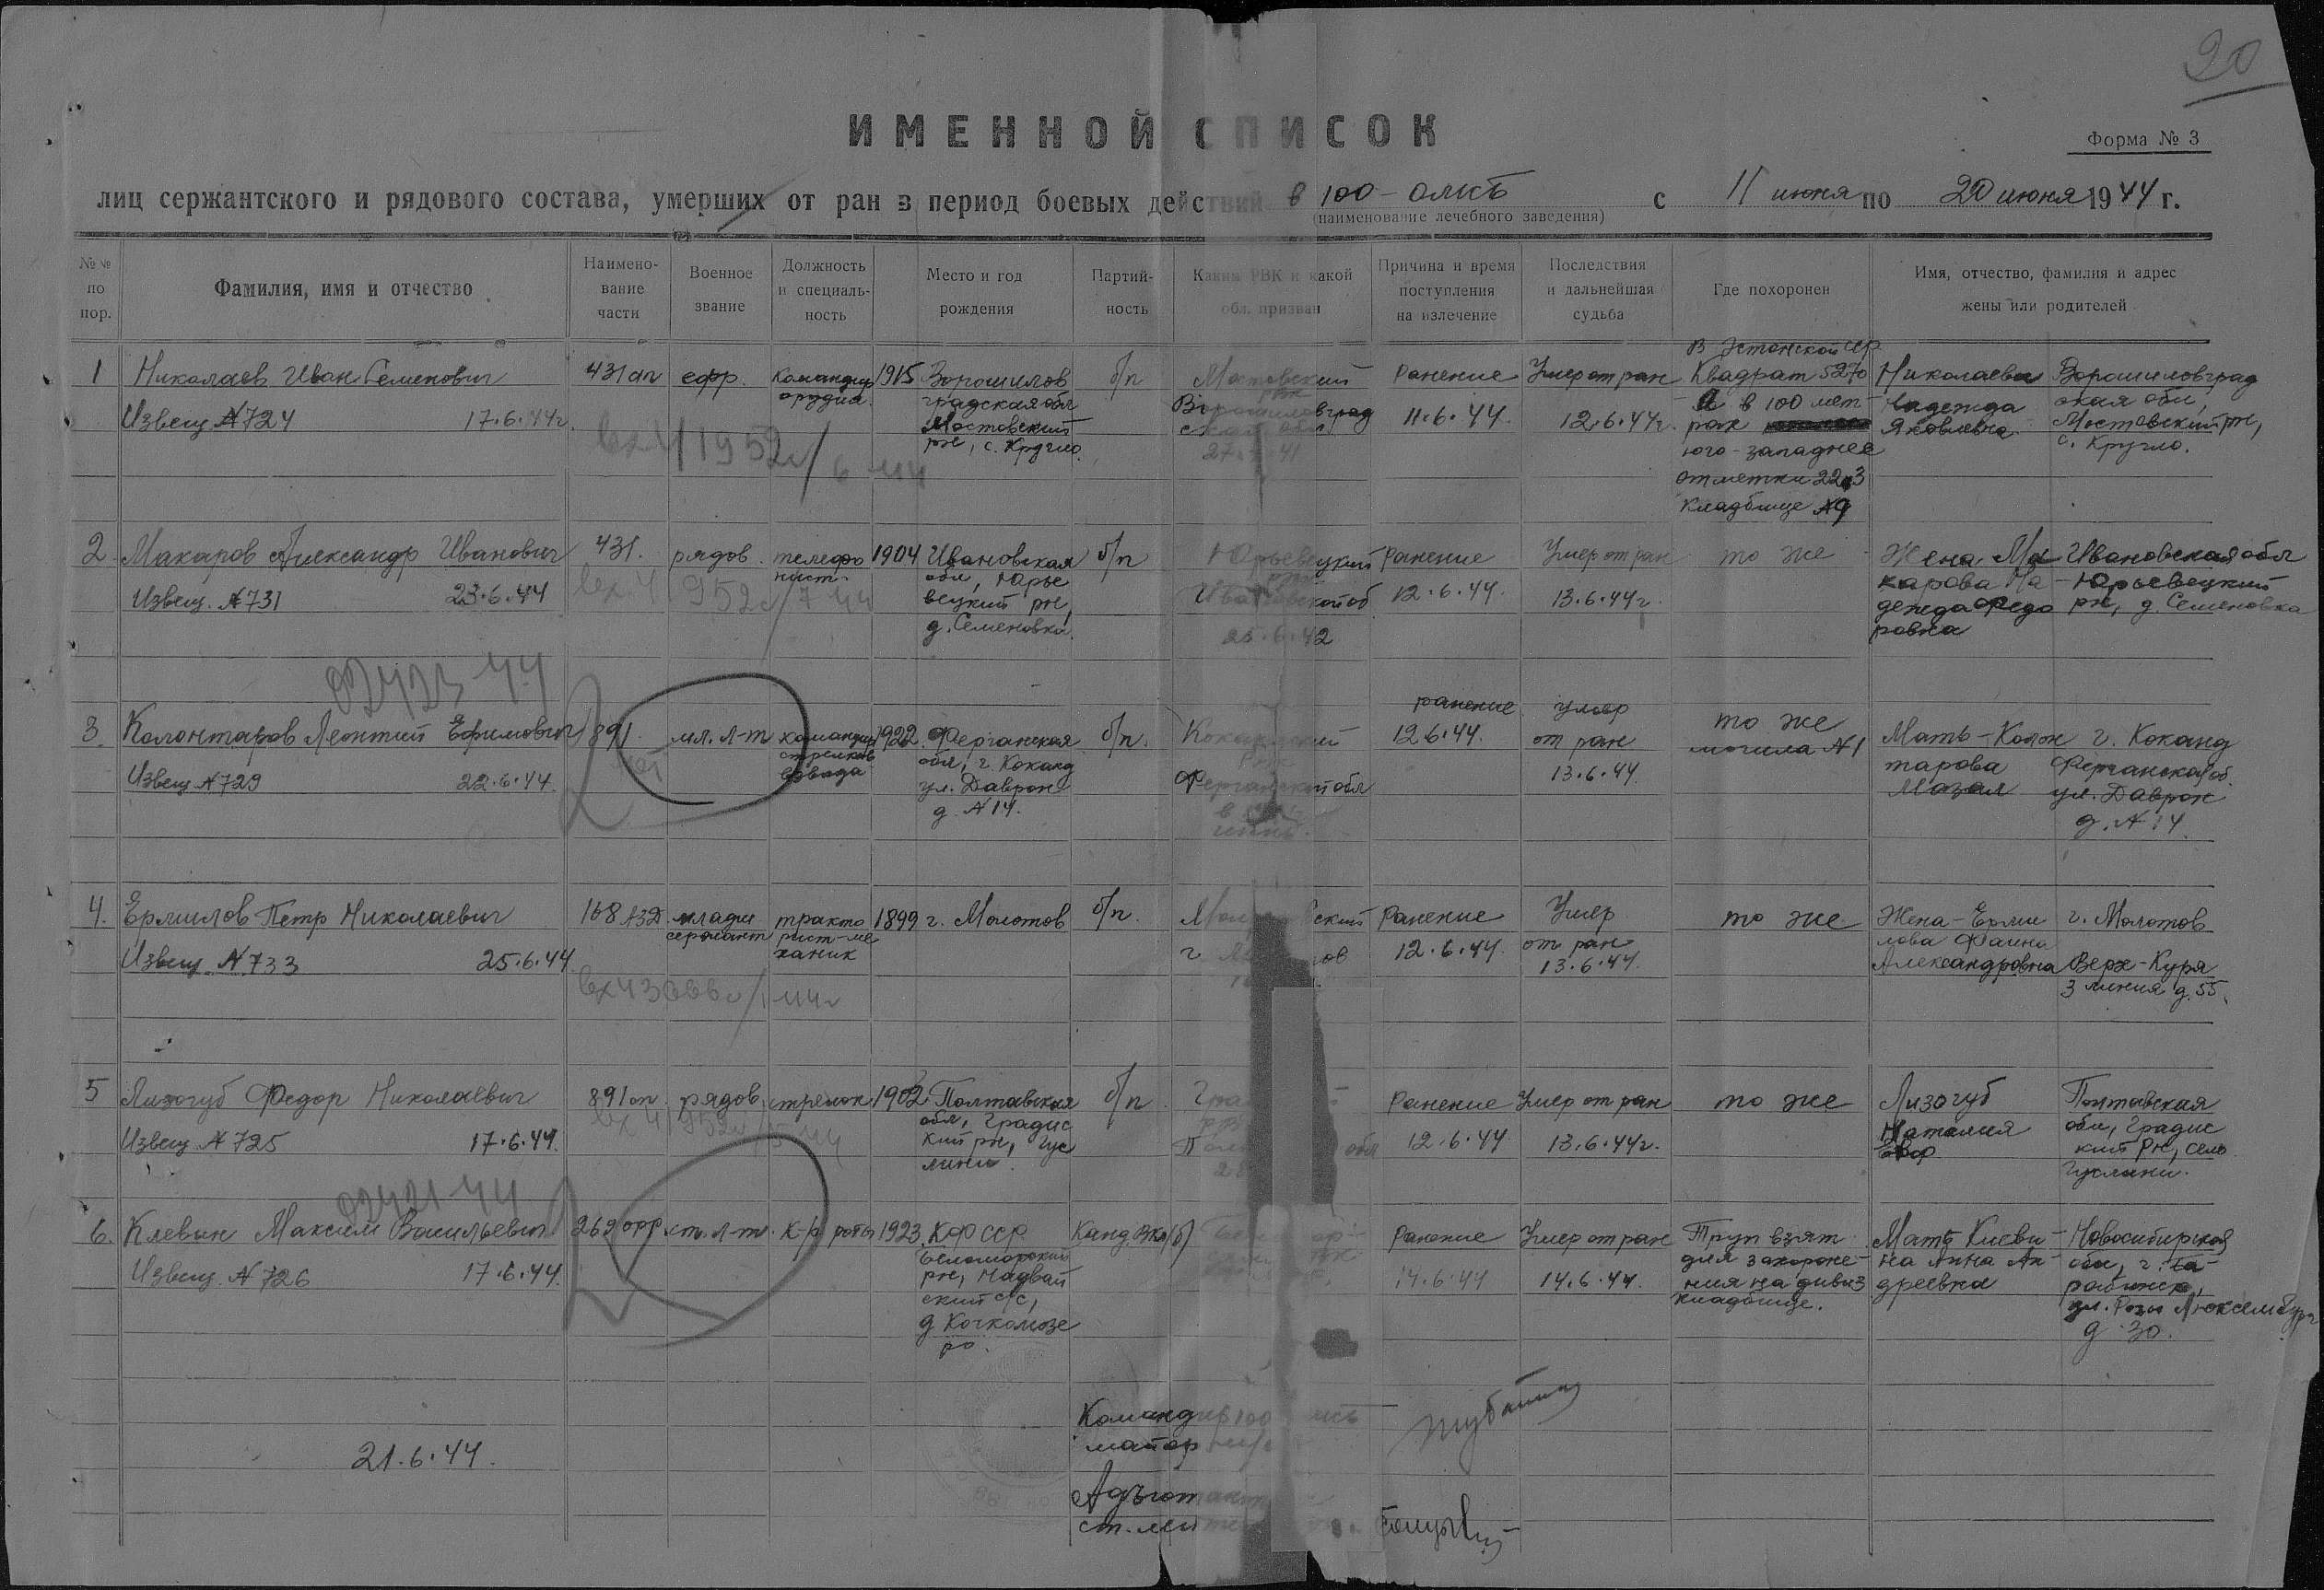 20
ИМЕННОЙ СПИСОК
Форма № 3
лиц сержантского и рядового состава, умерших от ран в период боевых действий в 100-омсб с 11 июня по 20 июня 1944 г.
(наименование лечебного заведения)
№№ по пор.
Фамилия, имя и отчество
Наимено-вание части
Военное звание
Должность и специаль-ность
Место и год рождения
Партий-ность
Каким РВК и какой обл. призван
Причина и время поступления на излечение
Последствия и дальнейшая судьба
Где похоронен
Имя, отчество, фамилия и адрес жены или родителей
1
Николаев Иван Семенович
Извещ. №724 17.6.44г.
431 сп
ефр.
Командир орудия.
1915
Ворошилов
градская обл
Мостовский
рн, с. Кругло.
б/п
Мостовский
рвк
Ворошиловград
ской обл
Ранение
11.6.44.
Умер от ран
12.6.44г.
В Эстонской сср
Квадрат 5270
в 100 мет
рах
юго-западнее
отметки 22,3
Кладбище №9
Николаева
Надежда
Яковлевна
Ворошиловград
ская обл,
Мостовский рн,
с. Кругло.
вх 41952с/6 44
2
Макаров Александр Иванович
Извещ. №731 23.6.44
431.
рядов.
телефо
нист.
1904
Ивановская
обл, Юрье
вецкий рн,
д. Семеновка.
б/п
Юрьевецкий
рвк
Ивановской об
25.6.42
Ранение
12.6.44.
Умер от ран
13.6.44г.
то же
Жена, Ма
карова На
дежда Федо
ровна
Ивановская обл
Юрьевецкий
рн, д. Семеновка
вх 41952с/7 44
92423 44
3.
Колонтаров Леонтий Ефимович
Извещ №729 22.6.44.
891.
мл. л-т
командир
стрелков
взвода
1922.
Ферганская
обл, г. Коканд
ул. Даврон
д. №14.
б/п.
Кокандский
РВК
Ферганской обл
ранение
12.6.44.
умер
от ран
13.6.44.
то же
могила №1
Мать - Колон
тарова
Мазал
г. Коканд
Ферганская об.
ул. Даврон
д. №14.
4.
Ермилов Петр Николаевич
Извещ. №733 25.6.44.
168 АЗД.
младш
сержант
тракто
рист-ме
ханик
1899
г. Молотов
б/п.
Ранение
12.6.44.
Умер
от ран
13.6.44.
то же
Жена - Ерми
лова Фаина
Александровна
г. Молотов
Верх-Куря
3 линия д. 55.
5
Лизогуб Федор Николаевич
Извещ №725 17.6.44.
891 сп.
рядов.
стрелок
1902
Полтавская
обл, Градис
кий рн, Гус
лини.
б/п
Ранение
12.6.44.
Умер от ран
13.6.44г.
то же
Лизогуб
Наталия
Полтавская
обл, Градис
кий рн, село
Гуслини.
92421 44
6.
Клевин Максим Васильевич
Извещ №726 17.6.44.
269 орр
ст. л-т.
к-р роты
1923
КФ ССР
Беломорский
рн, Надвай
ский с/с,
д Кочкомозе
ро.
Канд. ВКП(б)
Ранение
14.6.44
Умер от ран
14.6.44.
Труп взят
для захороне-
ния на дивиз
кладбище.
Мать Клеви-
на Анна Ан-
дреевна
Новосибирская
обл, г. Ба-
рабинск,
ул. Розы Люксембург
д. 30.
21.6.44.
Командир 100 омсб
майор м/с
Адъютант
ст. лейт